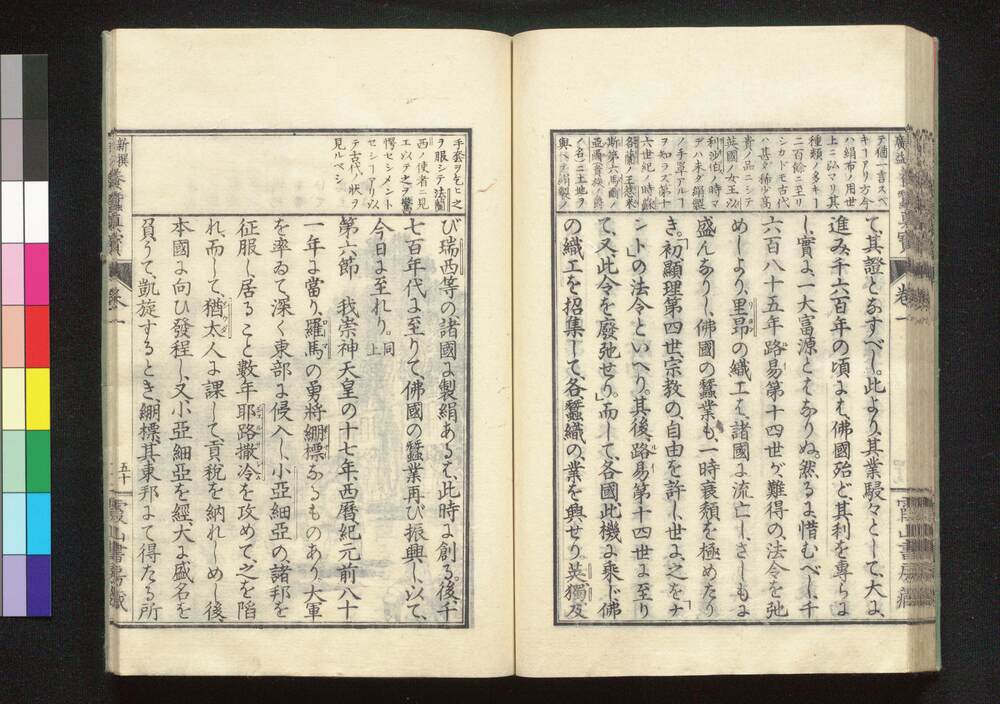 て、其證とあすべし。此より、其業駸々として、大よ
進み、千六百年の頃よハ、佛國殆ど、其利を專らよ
し、實よ、一大富源とはありぬ。然るよ、惜むべし、千
六百八十五年、路易第十四世ガ、難得の法令を弛
めしより、里昻の織工ハ、諸國よ流亡し、さしもよ
盛んありし、佛國の蠶業も、一時衰頽を極めたり
き。「初顯理第四世、宗教の自由を許し、世よ、之を「ナ
ント」の法令といへり。其後、路易第十四世よ至り
て、又此令を廢弛せり。」而して、各國此機よ乘じ、佛
の織工を招集して、各蠶織の業を興せり、英獨及
テ備ニ言スベ
キーアリ方今
ハ絹布ノ用世
上ニ弘マリ其
種類ノ多キー
二百餘ニ至リ
シカドモ古代
ハ甚タ稀少高
貴ノ品ニシテ
英國ノ女王以
利沙伯ノ時マ
デハ未タ絹製
ノ手覃アルー
ヲ知ラズ第十
六世紀ノ時蘇
各蘭ノ王惹米
斯第六馬爾ノ
ノ名ニ土地ヲ
與ヘテ絹製ノ
手套ヲ乞ヒ之
ヲ服シテ法蘭
西ノ使者ニ見
エ以テ之ヲ驚
愕セシメント
セシーアリ以
テ古代ノ狀ヲ
見ルベシ
び瑞西等の諸國よ製絹あるハ、此時よ創る。後、千
七百年代よ至りて、佛國の蠶業再び振興し、以て、
今日よ至れり。同上
第六節　我崇神天皇の十七年、西曆紀元前八十
一年よ當り、羅馬の勇將繃標あるものあり、大軍
を率ゐて、深く東部よ侵入し、小亞細亞の諸邦を
征服し、居ること數年、耶路撒冷を攻めて、之を陷
れ、而して、猶太人よ課して、貢稅を納れしめし後、
本國よ向ひ發程し、又小亞細亞を經、大よ盛名を
負うて、凱旋するとき、繃標、其東邦よて得たる所
新撰養蠶眞寶
卷一
五十
霞山書房藏